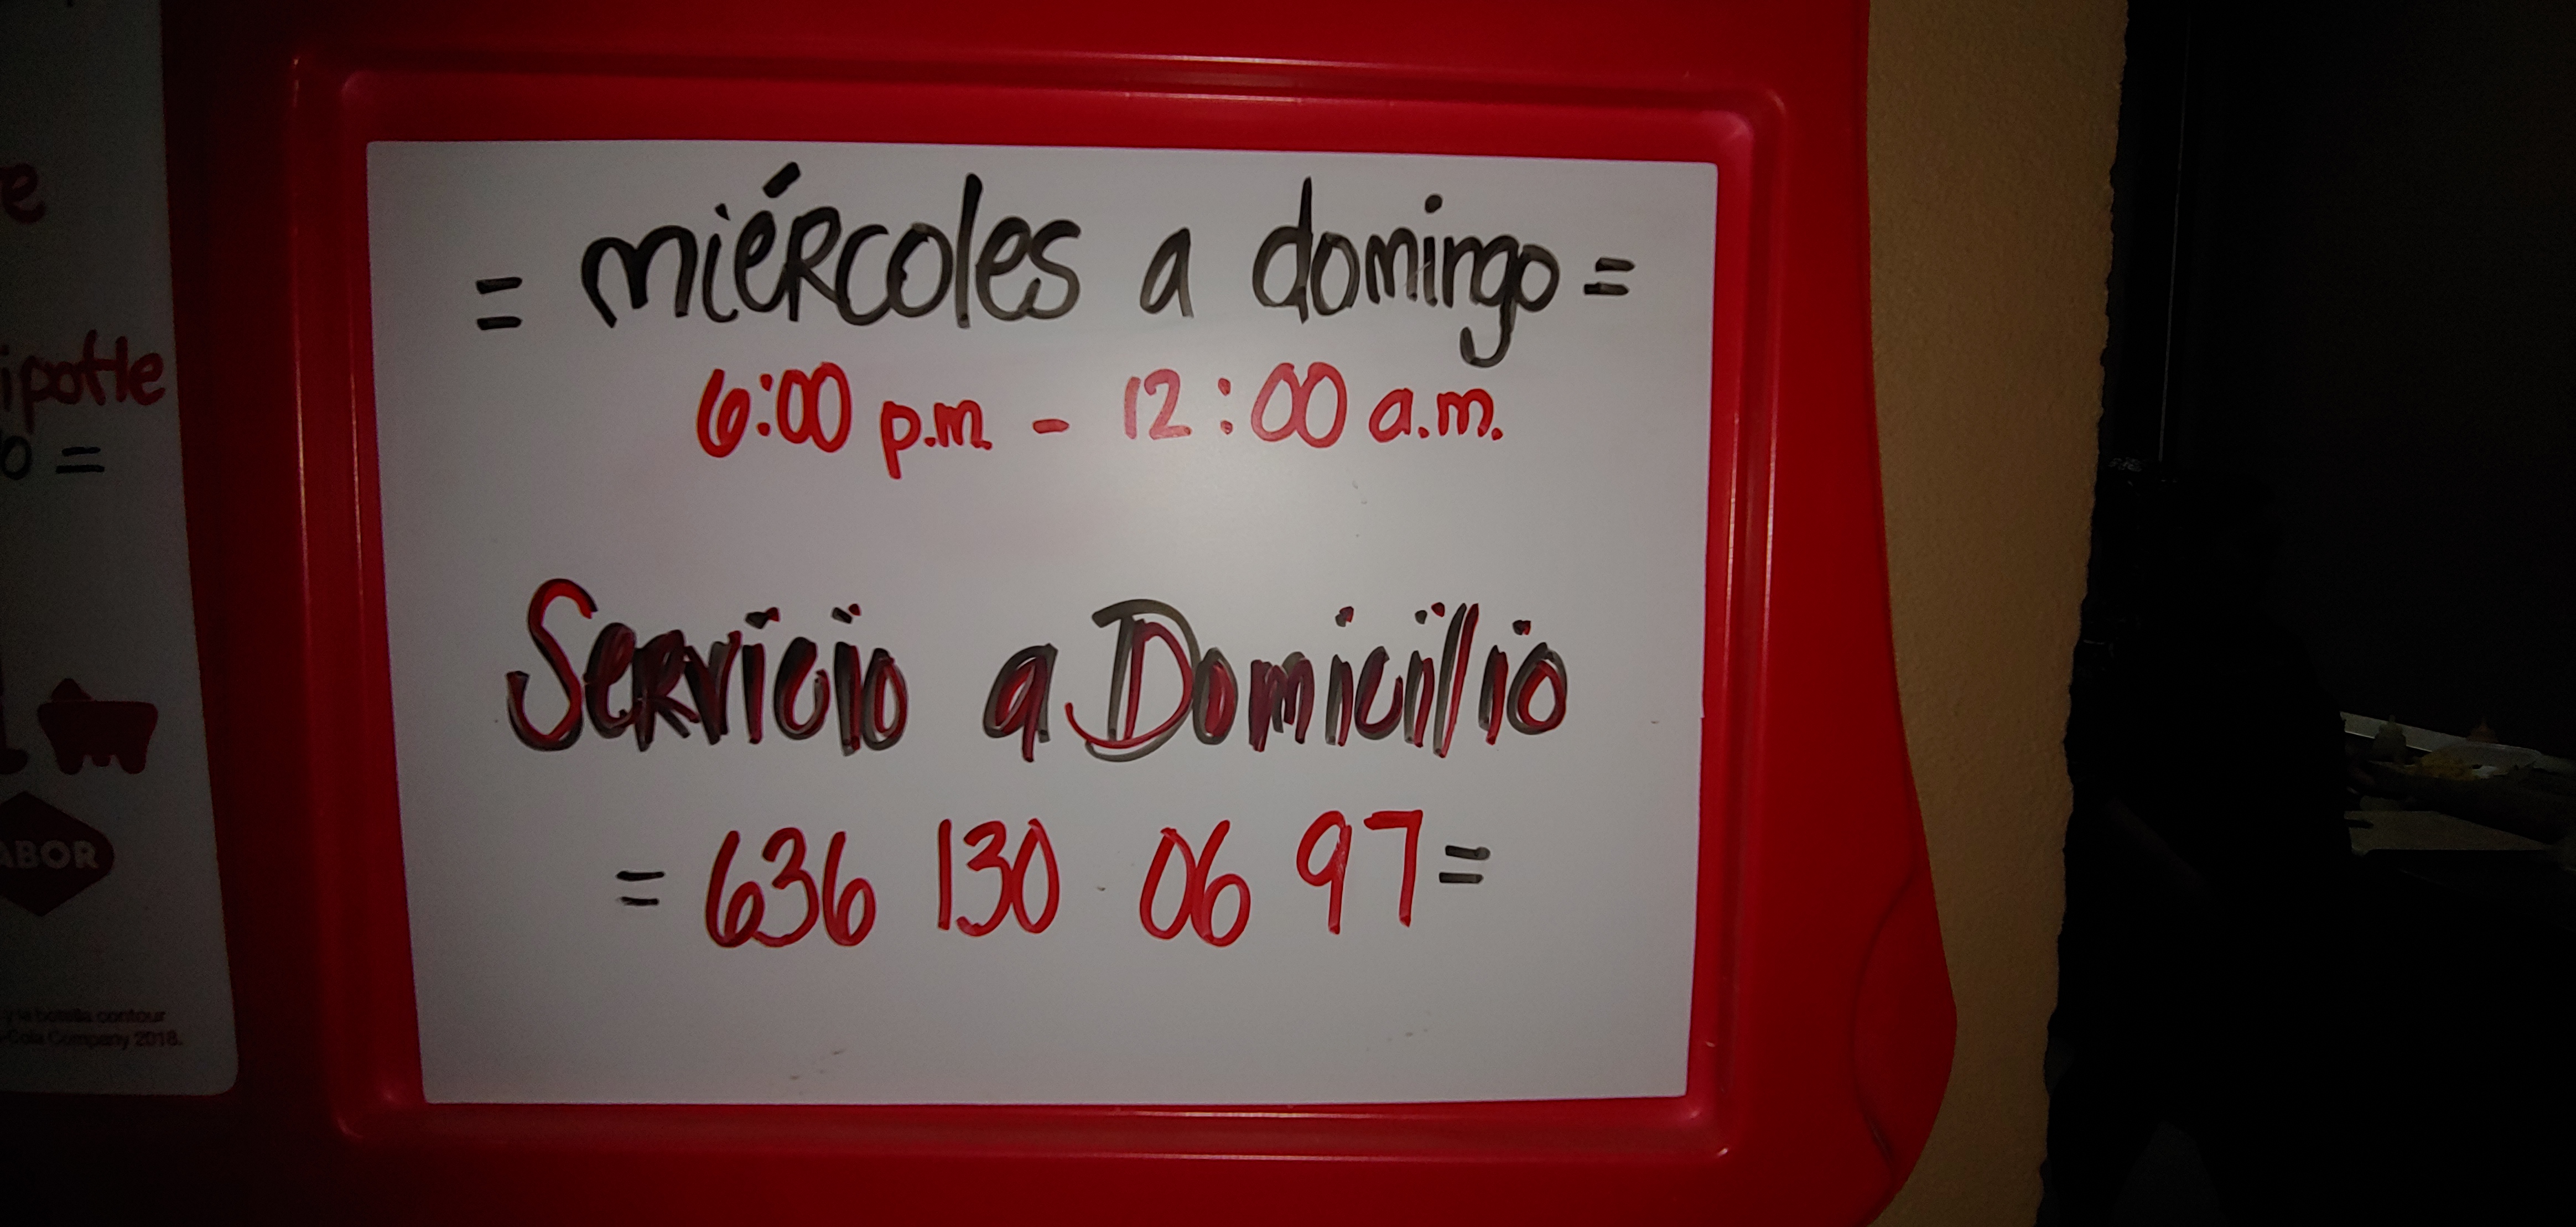 = miércoles a domingo =
6:00 p.m. - 12:00 a.m.
Servicio a Domicilio
= 636 130 06 97 =
=
y la botella contour
Company 2018.